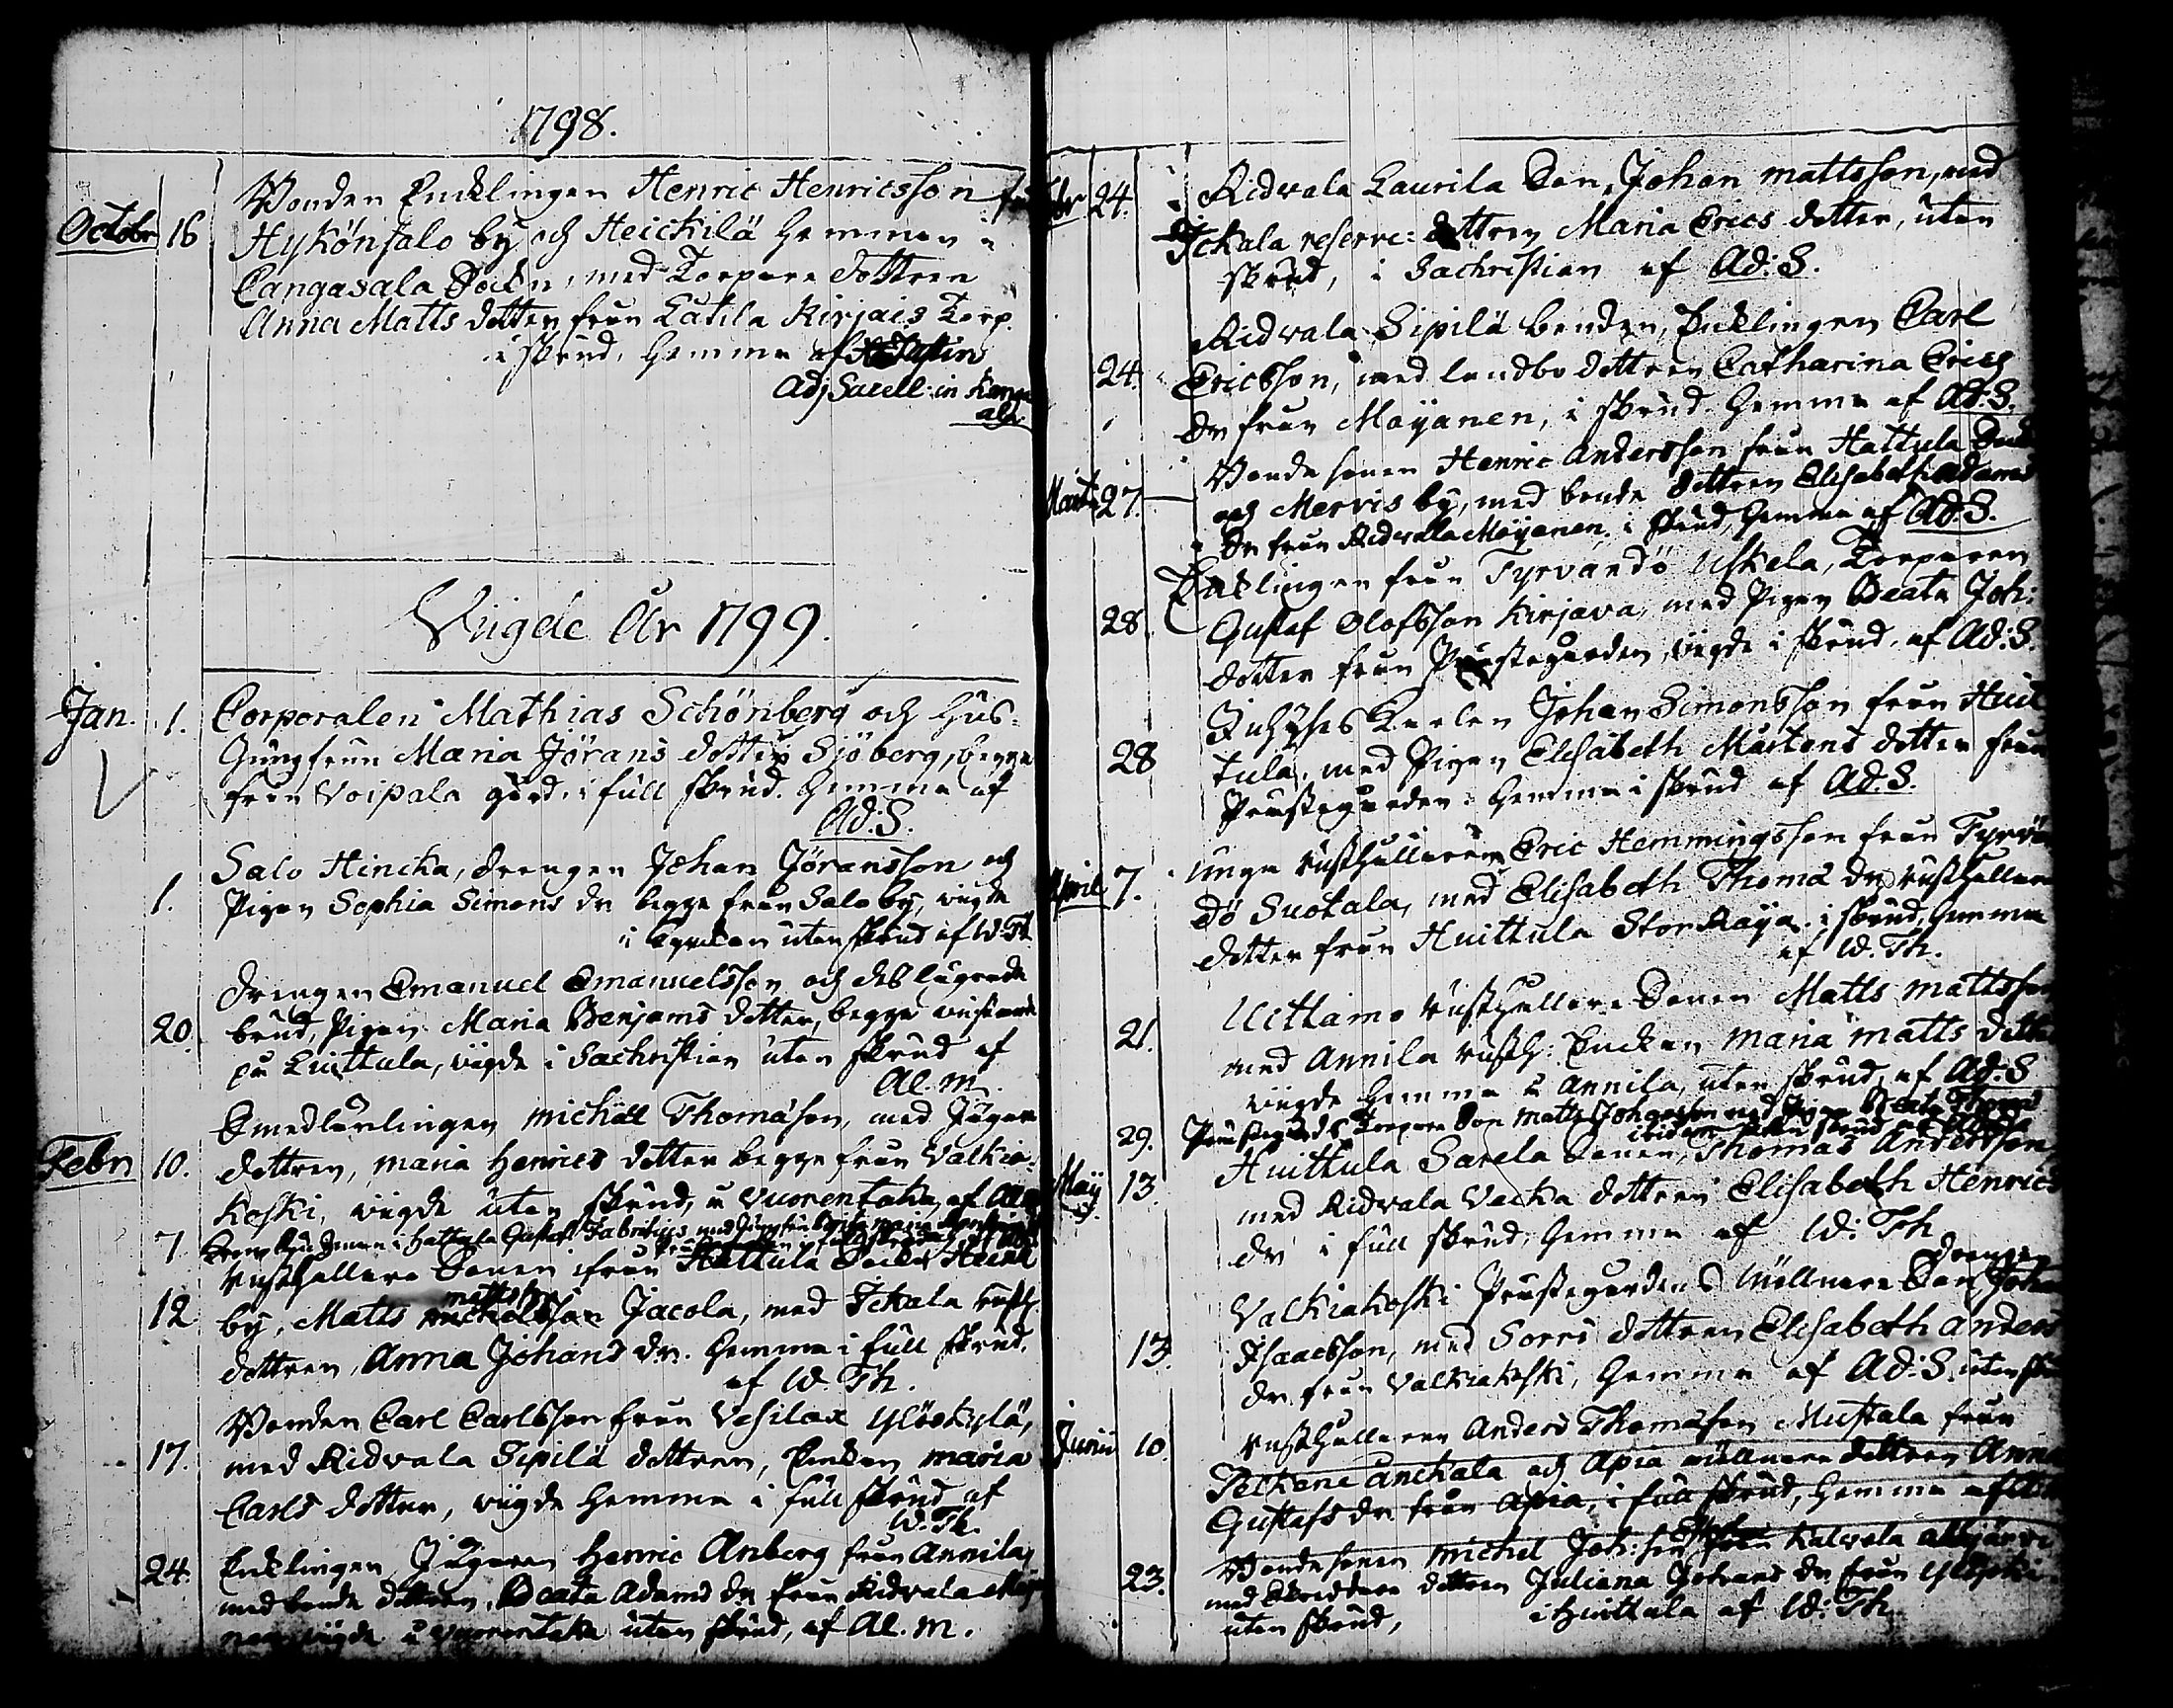 1798.
Octobr 16 Bonden Encklingen Henric Henricsson från
Hykönsalo by och Heickilä Hemman i
Cangasala Sockn, med Torpare dottren
Anna Matts dotter från Lahila Kirjais Torp.
i skrud, hemma af
Adj Sacell: in Kanga
ala.
Vigde Åhr 1799.
Jan. 1. Corporalen Mathias Schönberg och Hus-
Jungfrun Maria Jörans dotter Sjöberg, begge
från Voipala gård, i full skrud. hemma af
Ad: S.
1. Salo Hincka, drengen Johan Jöransson och
Pigan Sophia Simons dr begge från Salo by, vigde
i kyrkan utan skrud af W. Th
Drengen Emanuel Emanuelsson och deß lägrade
20. brud, Pigan Maria Benjams dotter, begge
på Huittula, vigde i Sachristian utan skrud af
Al. M.
Smedlärlingen Michäel Thomasson, med Jägare
Febr. 10. dottren, Maria Henrics dotter begge från Valkia-
koski, vigde utan skrud, i Vuorentaka, af Al. M
7 i Hattula Gustaf Fabritius med Jungfru Brita Maria
Rusthållare Sonen från Hattula Sockn
12 by, Matts Mattsson Jacola, med Ickala rusth.
dottren, Anna Johans dr. hemma i full skrud.
af W. Th.
Bonden Carl Carlsson från Vesilax Ylöskylä,
17. med Ridvala Sipilä dottren, Enckan Maria
Carls dotter, vigde hemma i full skrud af
W. Th.
24. Encklingen Jägaren Henric Anberg från Annila,
med bonde dottren, Beata Adams dr från Ridvala Mäyä
nen vigde i Vuorentaka utan skrud, af Al. M.
Febr 24. Ridvala Laurila Son, Johan Mattsson, med
Ickala reserve: dottren Maria Erics dotter, utan
skrud, i Sachristian af Ad: S.
Ridvala Sipilä bonden, Encklingen Carl
24. Ericsson, med landbo dottren Catharina Erics
Dr från Mäyänen, i skrud hemma af Ad: S.
Bonde sonen Henric Andersson från Hattula Sock
Mart. 27. och Mervis by, med bonde dottren Elisabeth Adams
Dr från Ridvala Mäyänen i skrud, hemma af Ad: S.
Encklingen från Tyrvändö Uskela, Torparen
28 Gustaf Olofsson Kirjava, med Pigan Beata Joh:
dotter från Prustegården, vigde i skrud, af Ad: S.
Karlen Johan Simonsson från Huit
28 tula, med Pigan Elisabeth Mårtens dotter från
Prustegården. hemma i skrud af Ad: S.
Unga rusthållaren Eric Hemmingsson från Tyrvän
April 7. dö Suotala, med Elisabeth Thomæ dr, rusthållare
dotter från Huittula Stor Raya. i skrud, hemma
af W. Th.
Uittamo rusthållare Sonen Matts Mattsson
21. med Annila rusth: Enckan Maria Matts dotter
vigde hemma i Annila, utan skrud, af Ad: S
29. Prustegårds Torpare Son Matts Johansson med Pigan Beata Thomæ
ibidem utan skrud af
Huittula Sarela Sonen, Thomas Andersson,
Maij 13 med Ridvala Vecka dottren Elisabeth Henrics
dr i full skrud, hemma af W: Th
Valkiakoski Prustegårdens Möllnare Son, drengen Johan
13. Isaacsson, med Sorri dottren Elisabeth Anders
dr från Valkiakoski, hemma af Ad: S. utan skr
Junii 10. Rusthållaren Anders Thomasson Mustala från
Pelkäne Anckala och Apia möllnare dottren Anna
Gustafs dr från Apia, i full skrud, hemma af
Bonde sonen Michel Joh: son från Kalvola
23. med Skreddare dottren Juliana Johans dr från
utan skrud, i Huittula af W: Th.